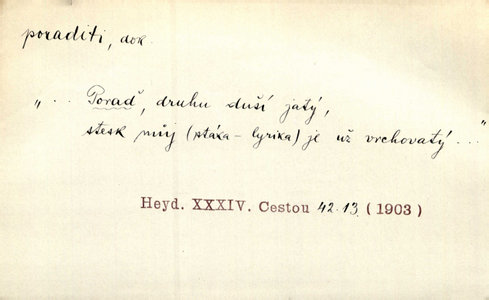 poraditi, dok.
„... Poraď, druhu duší jatý,
stesk můj (ptáka - lyrika) je už vrchovatý ..."
Heyd. XXXIV. Cestou 42.13. (1903)